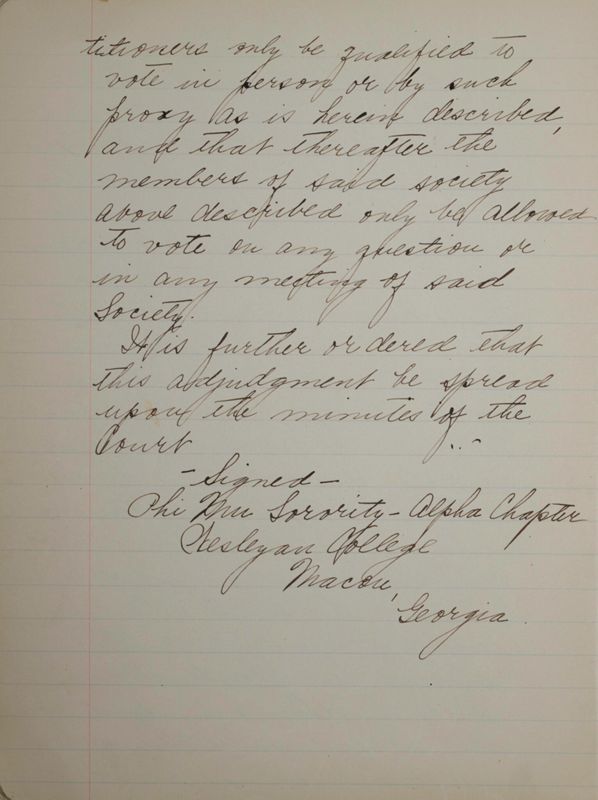 titioners only be qualified to
vote in person or by such
proxy as is herein described,
and that thereafter the
members of said society
above described only be allowed
to vote on any question or
in any meeting of said
Society.
It is further ordered that
this adjudgment be spread
upon the minutes of the
Court
- Signed -
Phi Mu Sorority - Alpha Chapter
Wesleyan College
Macon,
Georgia.